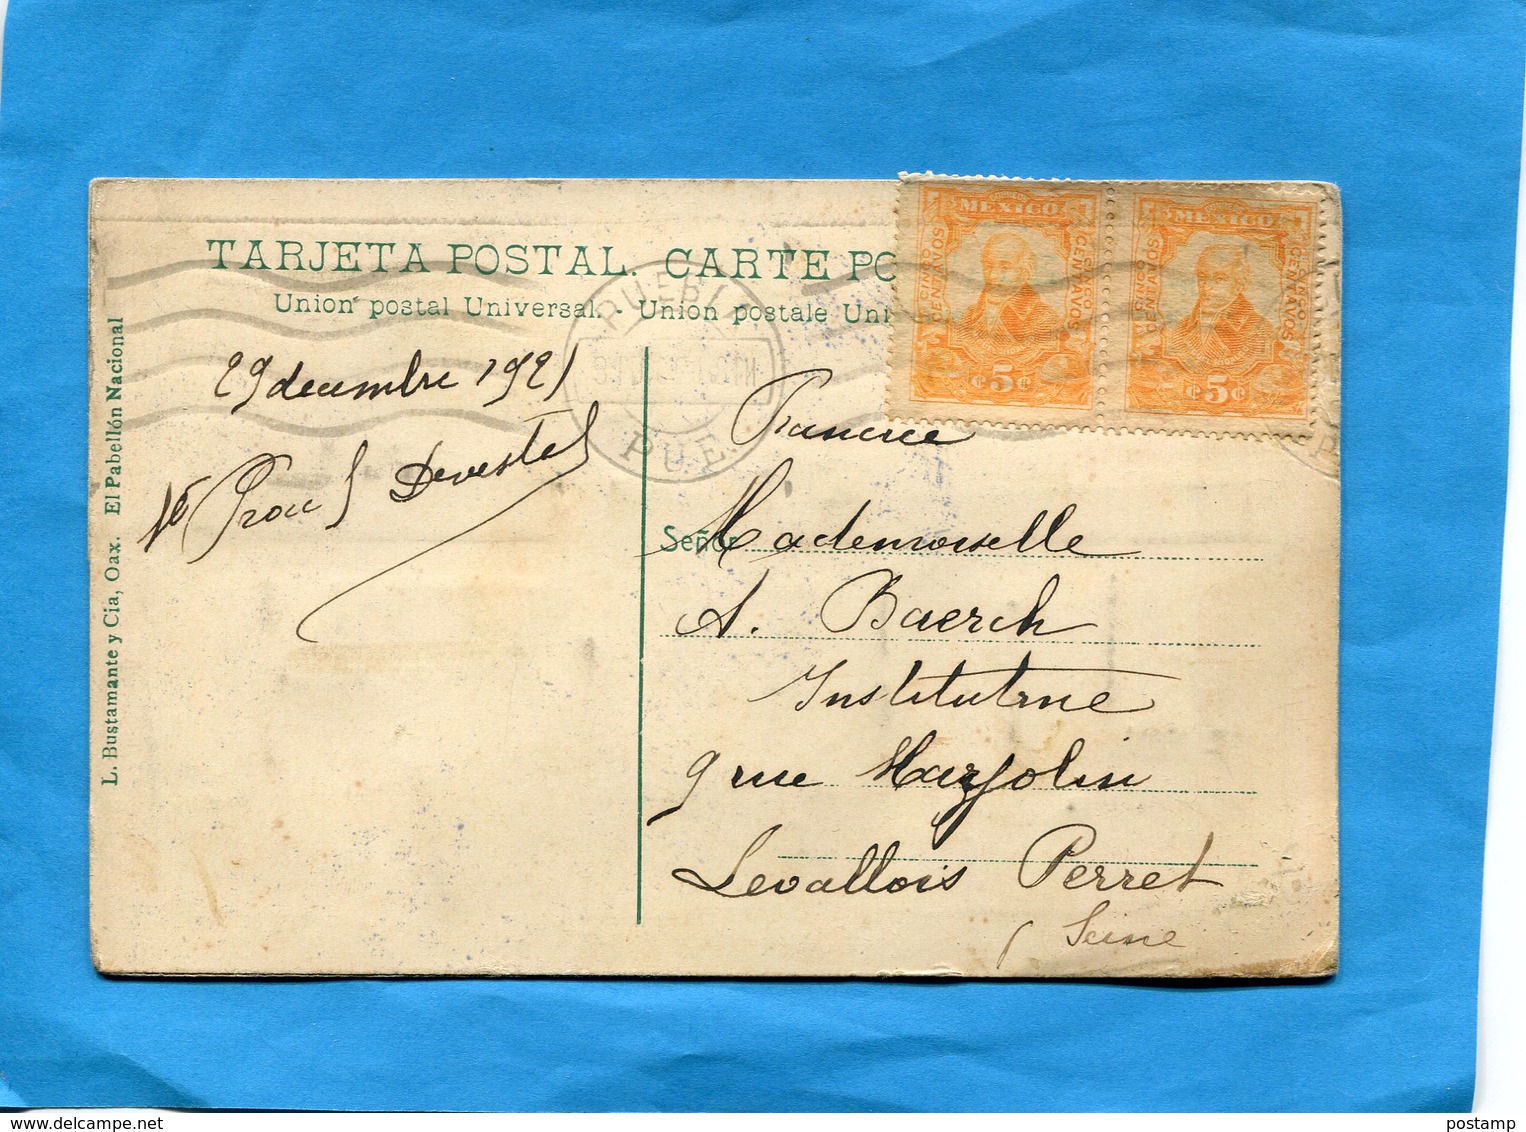 TARJETA POSTAL. CARTE PO
Union postal Universal. - Union postale Uni
MEXICO
CINCO CENTAVOS
CINCO CENTAVOS
¢ 5 ¢
MEXICO
CINCO CENTAVOS
CINCO CENTAVOS
¢ 5 ¢
PUEBLA
PUE.
29 decembre 1921
France
Señor
Mademoiselle
A. Baerch
Institutrice
9 rue Marjolin
Levallois Perret
(Seine
L. Bustamante y Cia, Oax. El Pabellón Nacional
postamp
www.delcampe.net